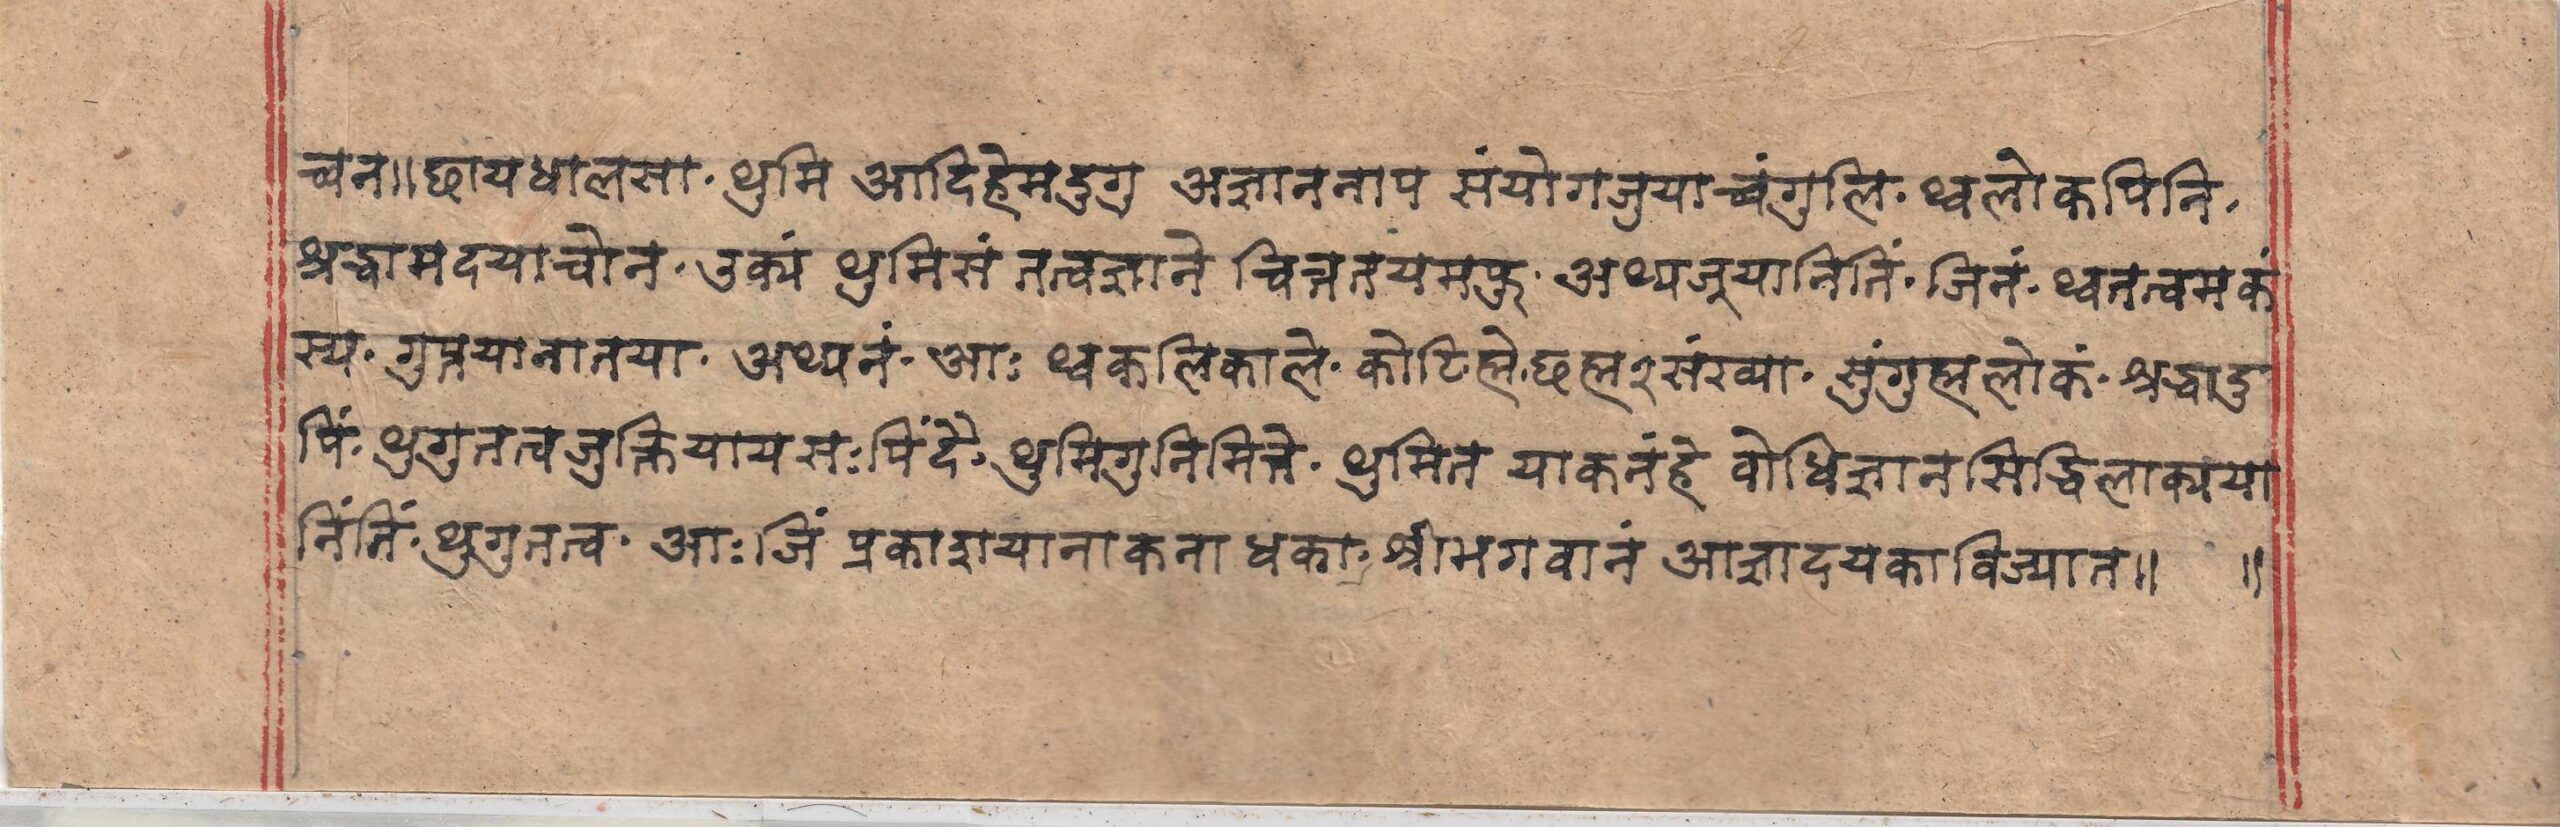 च्वन॥ छायधालसा· थुमि आदिहेमदुगु अज्ञाननाप संयोगजुयाच्वंगुलि· थ्वलोकपिनि·
श्रद्धामदयाचोन· उक्यं थुमिसं तत्वज्ञाने चित्ततयमफु· अथ्यजूयानिंतिं· जिनं· थ्वतत्वमकं
स्य· गुप्तयानातया· अथ्यनं· आः थ्वकलिकाले· कोटिह्मे· छह्म२संख्या· सुंगुह्मलोकं· श्रद्धादु
पिं· थुगुतत्वजुक्तियायसःपिंदै· थुमिगुनिमित्ते· थुमित याकनंहे वोधिज्ञानसिद्धिलाक्यया
निंतिं· थुगुतत्व· आः जिं प्रकाशयानाकनाधका· श्रीभगवानं आज्ञादयकाविज्यात॥ ॥